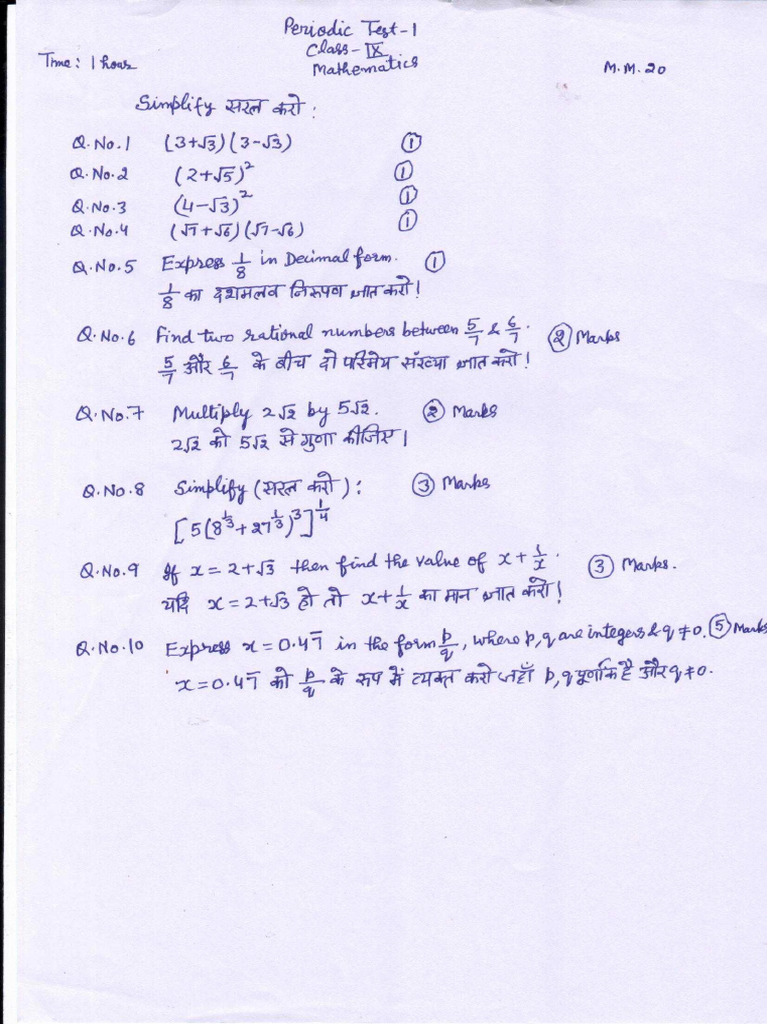 Periodic Test-1
Class-IX
Time: 1 hour
Mathematics
M.M. 20
Simplify सरल करो :
Q.No.1 (3+√3)(3-√3) ①
Q.No.2 (2+√5)² ①
Q.No.3 (4-√3)² ①
Q.No.4 (√7+√6)(√7-√6) ①
Q.No.5 Express 1/8 in Decimal form. ①
1/8 का दशमलव निरूपण ज्ञात करो!
Q.No.6 Find two rational numbers between 5/7 & 6/7. ② Marks
5/7 और 6/7 के बीच दो परिमेय संख्या ज्ञात करो!
Q.No.7 Multiply 2√2 by 5√2. ② Marks
2√2 को 5√2 से गुणा कीजिए।
Q.No.8 Simplify (सरल करो): ③ Marks
[5(8^{1/3}+27^{1/3})^3]^{1/4}
Q.No.9 If x=2+√3 then find the value of x+1/x. ③ Marks.
यदि x=2+√3 हो तो x+1/x का मान ज्ञात करो!
Q.No.10 Express x=0.47̅ in the form p/q, where p,q are integers & q≠0. ⑤ Marks
x=0.47̅ को p/q के रूप में व्यक्त करो जहाँ p,q पूर्णांक है और q≠0.